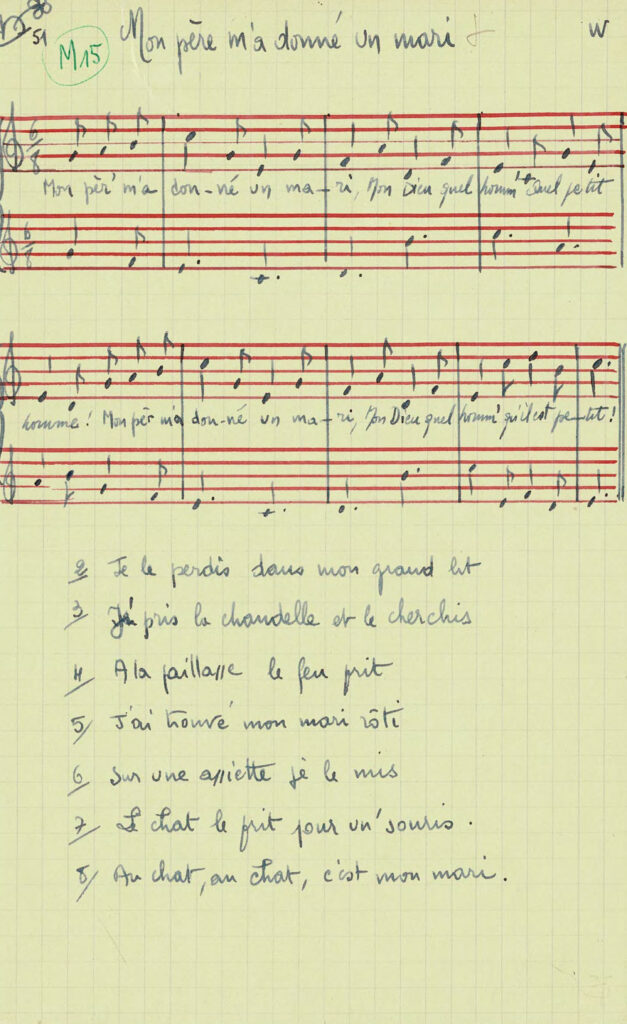 51
M15
Mon père m'a donné un mari
W
6
8
Mon pèr' m'a don-né un ma-ri, Mon Dieu quel homm' Quel petit
6
8
homme! Mon pèr m'a don-né un ma-ri, Mon Dieu quel homm' qu'il est pe-tit!
2 Je le perdis dans mon grand lit
3/ J' pris la chandelle et le cherchis
4/ A la paillasse le feu prit
5/ J'ai trouvé mon mari rôti
6/ Sur une assiette je le mis
7/ Le chat le prit pour un' souris.
8/ Au chat, au chat, c'est mon mari.